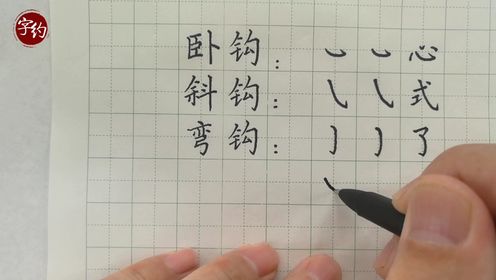 字约
卧钩：㇃㇃心
斜钩：㇂㇂式
弯钩：㇁㇁了